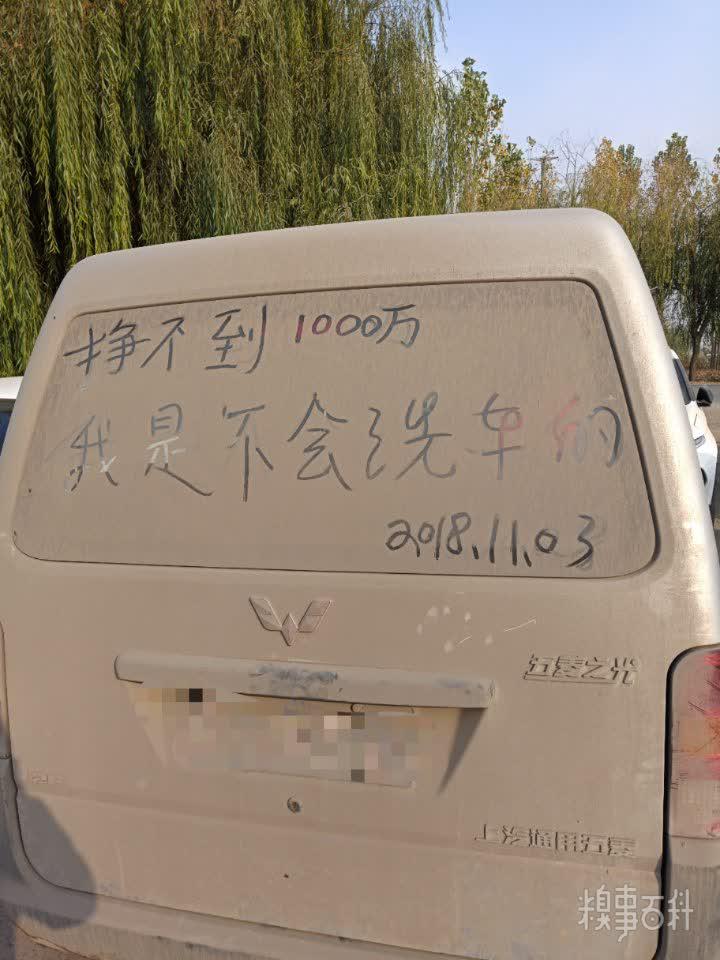 挣不到1000万
我是不会洗车的
2018.11.03
五菱之光
上汽通用五菱
糗事百科